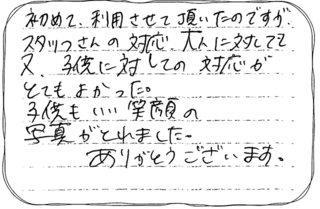 初めて、利用させて頂いたのですが、
スタッフさんの対応、大人に対しても
又、子供に対しての対応が
とてもよかった。
子供もいい笑顔の
写真がとれました。
ありがとうございます。